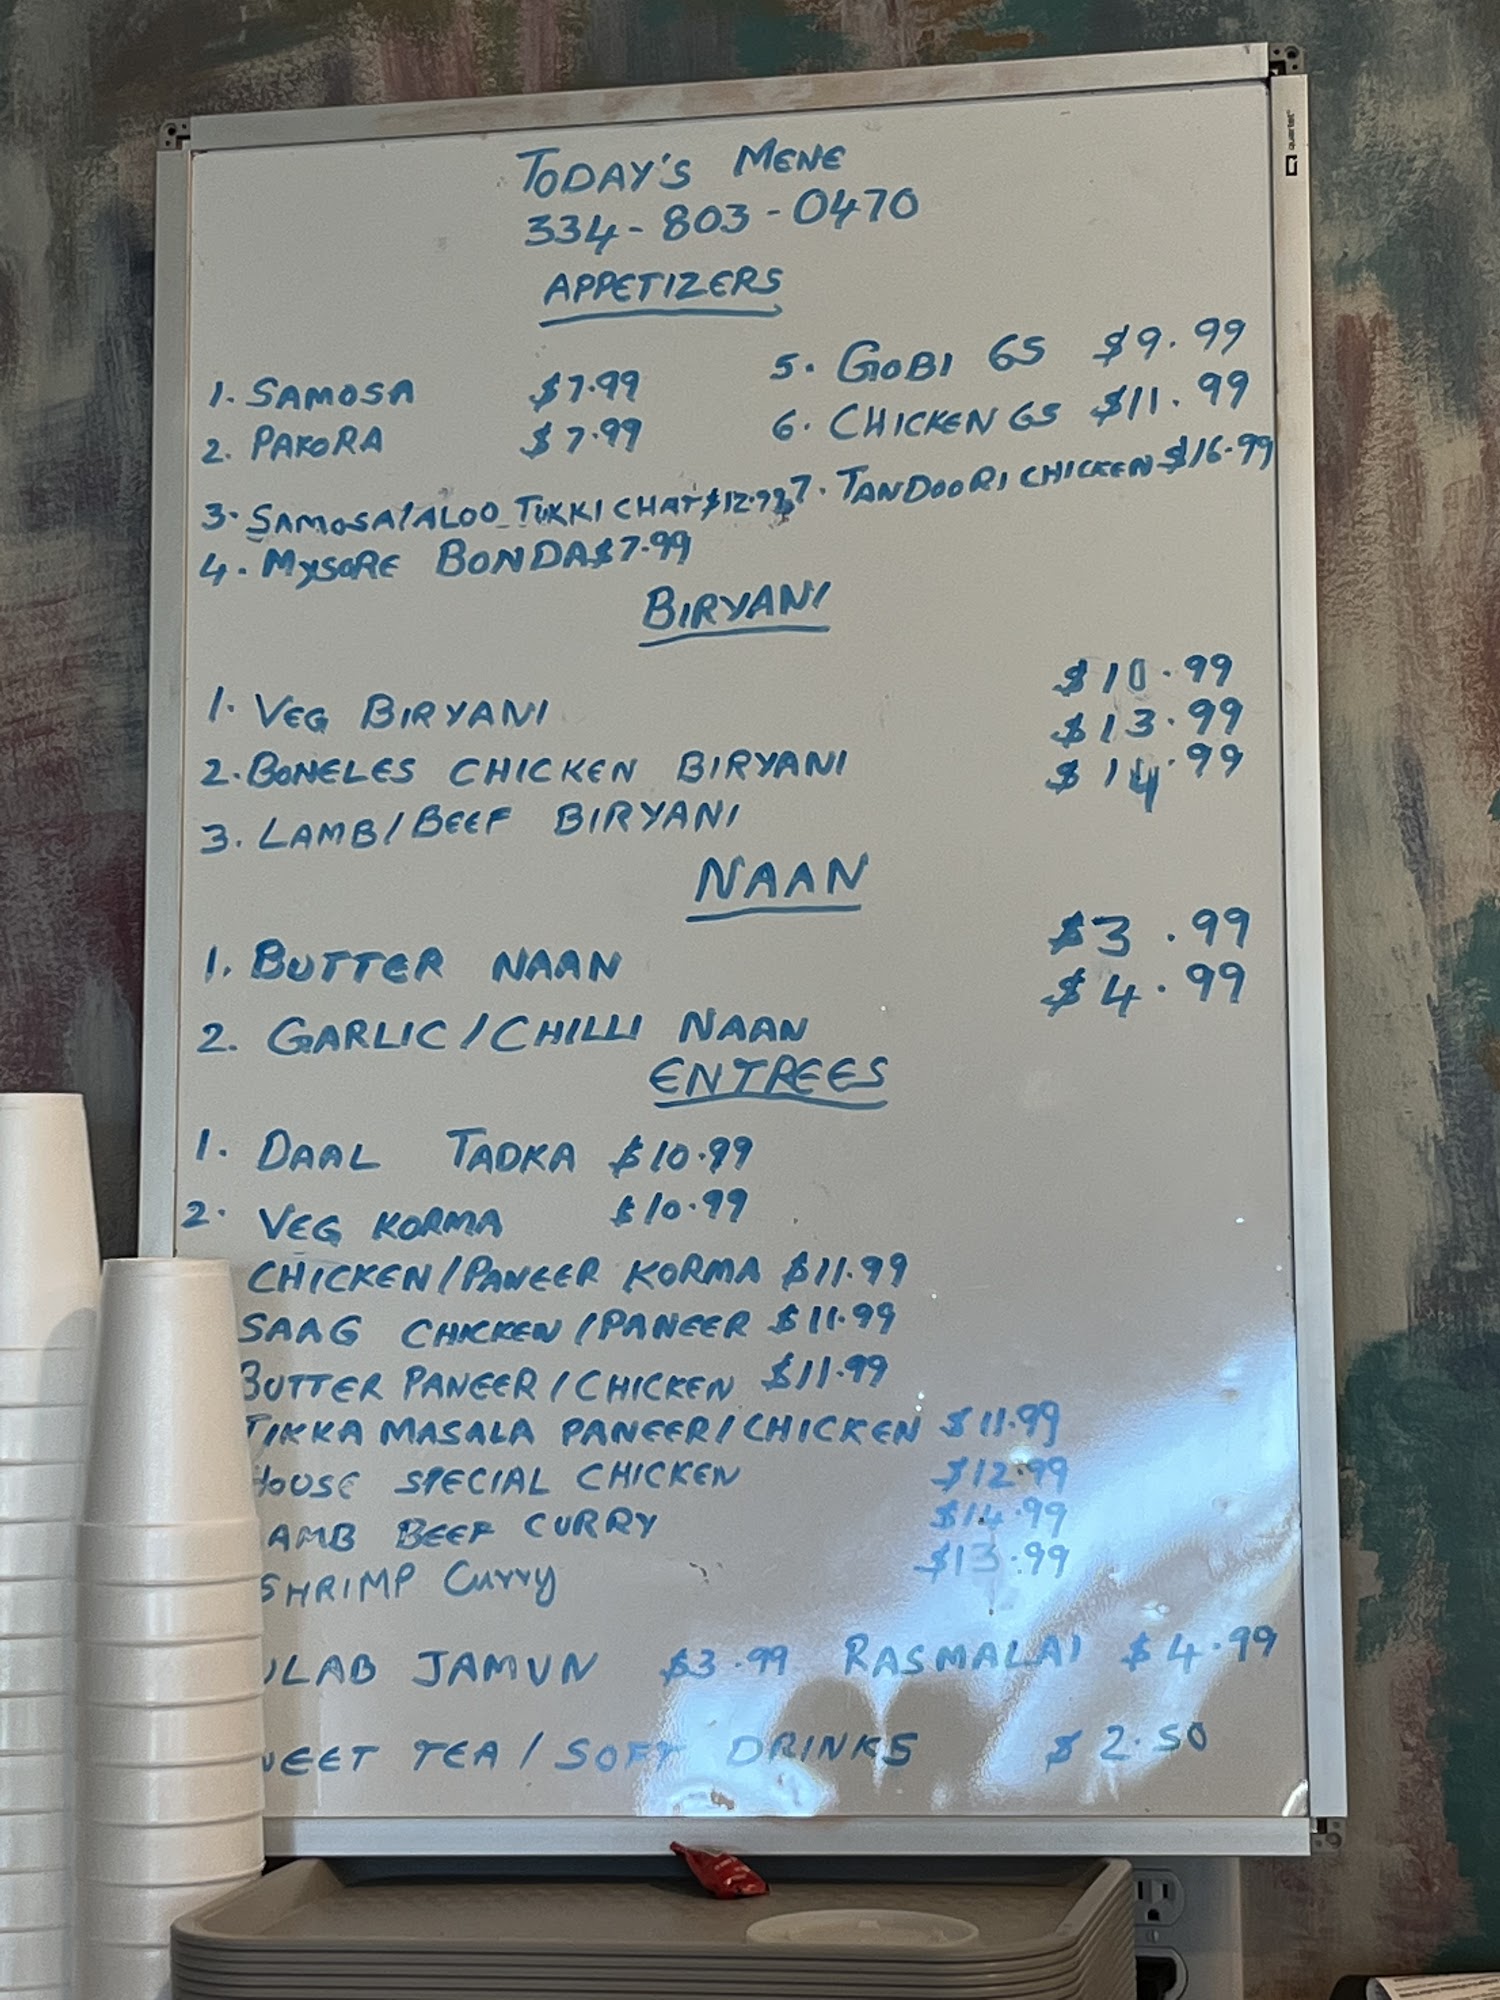 TODAY'S MENE
334-803-0470
APPETIZERS
1. SAMOSA $7.99
2. PAKORA $7.99
3. SAMOSA/ALOO TIKKI CHAT $12.99
4. MYSORE BONDA $7.99
5. GOBI 65 $9.99
6. CHICKEN 65 $11.99
7. TANDOORI CHICKEN $16.99
BIRYANI
1. VEG BIRYANI $10.99
2. BONELES CHICKEN BIRYANI $13.99
3. LAMB/BEEF BIRYANI $14.99
NAAN
1. BUTTER NAAN $3.99
2. GARLIC/CHILLI NAAN $4.99
ENTREES
1. DAAL TADKA $10.99
2. VEG KORMA $10.99
CHICKEN/PANEER KORMA $11.99
SAAG CHICKEN/PANEER $11.99
BUTTER PANEER/CHICKEN $11.99
TIKKA MASALA PANEER/CHICKEN $11.99
HOUSE SPECIAL CHICKEN $12.99
AMB BEEF CURRY $14.99
SHRIMP Curry $13.99
ULAB JAMUN $3.99 RASMALAI $4.99
WEET TEA/SOFT DRINKS $2.50
quartet